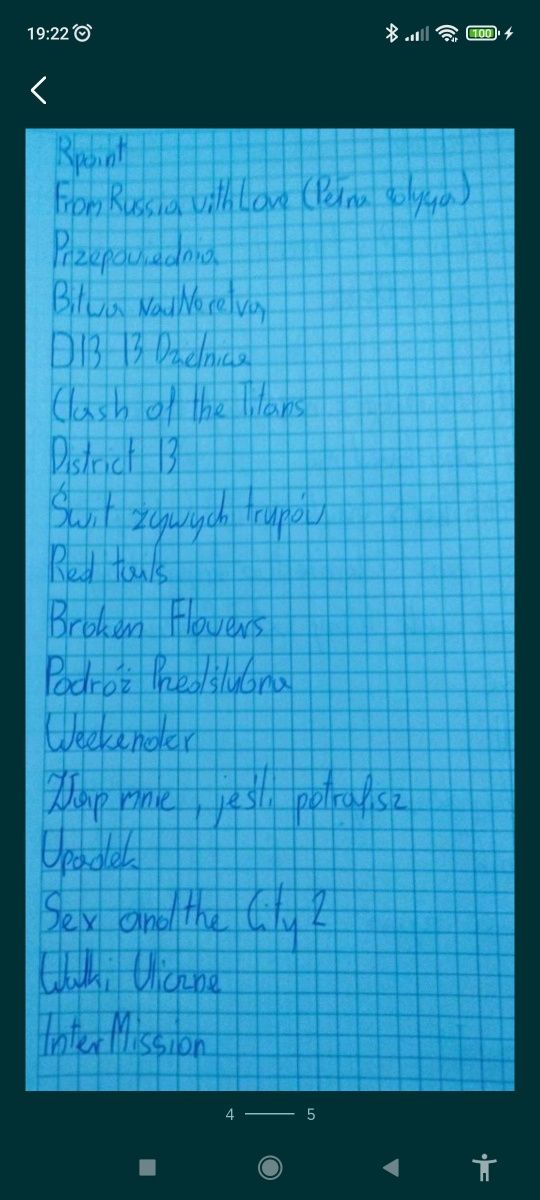 19:22
100
Rpoint
From Russia with Love (Pełna
Przepowiednia
Bitwa Nad Neretvą
D13 13 Dzelnica
Clash of the Titans
District 13
Świt żywych trupów
Red tails
Broken Flowers
Podróż Przedślubna
Weekender
Złap mnie, jeśli potrafisz
Upadek
Sex and the City 2
Walki Uliczne
InterMission
4 5